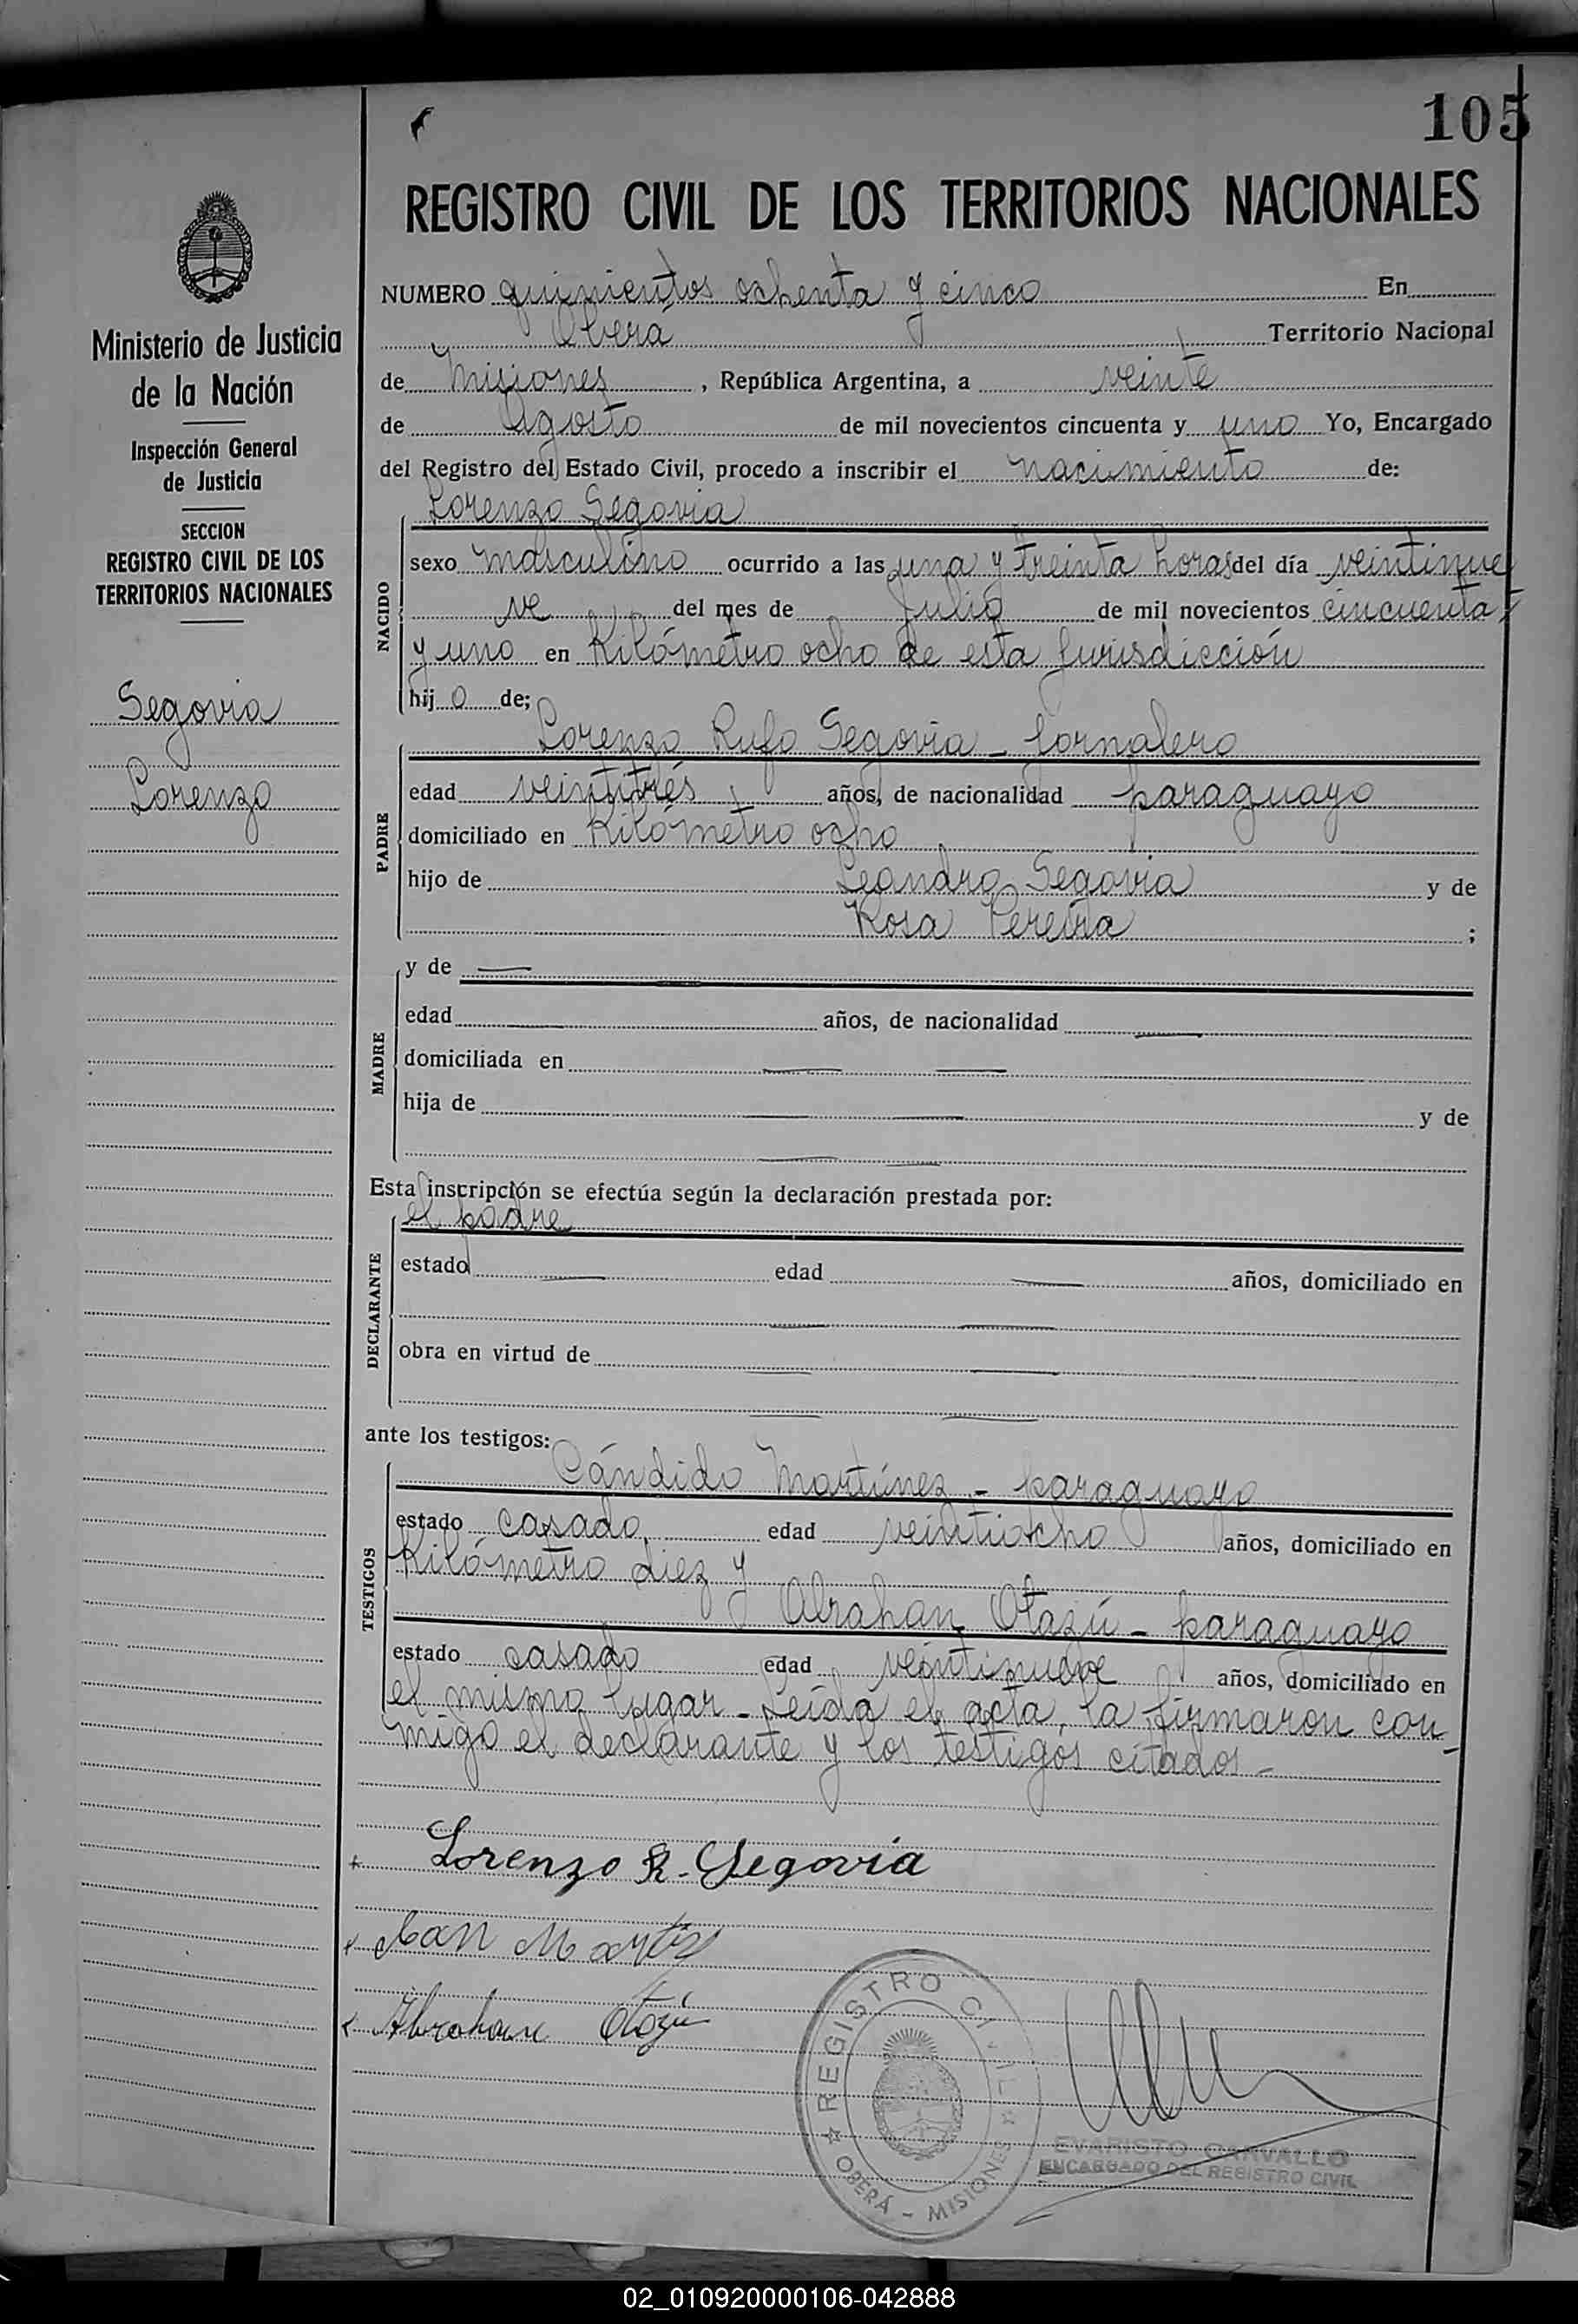 105
REGISTRO CIVIL DE LOS TERRITORIOS NACIONALES
Ministerio de Justicia
de la Nación
Inspección General
de Justicia
SECCION
REGISTRO CIVIL DE LOS
TERRITORIOS NACIONALES
Segovia
Lorenzo
NUMERO quinientos ochenta y cinco En
Oberá Territorio Nacional
de Misiones , República Argentina, a veinte
de Agosto de mil novecientos cincuenta y uno Yo, Encargado
del Registro del Estado Civil, procedo a inscribir el nacimiento de:
Lorenzo Segovia
NACIDO
sexo masculino ocurrido a las una y treinta horas del día veintinue
ve del mes de Julio de mil novecientos cincuenta
y uno en Kilómetro ocho de esta Jurisdicción
hij o de;
Lorenzo Rufo Segovia - Jornalero
PADRE
edad veintitrés años, de nacionalidad paraguayo
domiciliado en Kilómetro ocho
hijo de Leandro Segovia y de
Rosa Pereira ;
MADRE
y de —
edad — años, de nacionalidad —
domiciliada en — —
hija de — — y de
— —
Esta inscripción se efectúa según la declaración prestada por:
el padre
DECLARANTE
estado — edad — años, domiciliado en
— —
obra en virtud de — —
— —
ante los testigos:
Cándido Martínez - paraguayo
TESTIGOS
estado casado edad veintiocho años, domiciliado en
Kilómetro diez y
Abrahan Otazú - paraguayo
estado casado edad veintinueve años, domiciliado en
el mismo lugar - Leída el acta, la firmaron con-
migo el declarante y los testigos citados -
Lorenzo R. Segovia
Abrahan Otazú
REGISTRO CIVIL
OBERÁ - MISIONES
EVARISTO CARVALLO
ENCARGADO DEL REGISTRO CIVIL
02_010920000106-042888